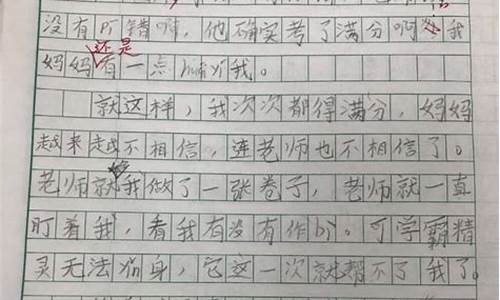 没有听错啊，他确实考了满分啊，我
妈妈还是有一点huái yí我。
就这样，我次次都得满分，妈妈
越来越不相信，连老师也不相信了。
老师就给我做了一张卷子，老师就一直
盯着我，看我有没有作bì。可学霸精
灵无法分身，它这一次就帮不了我了。